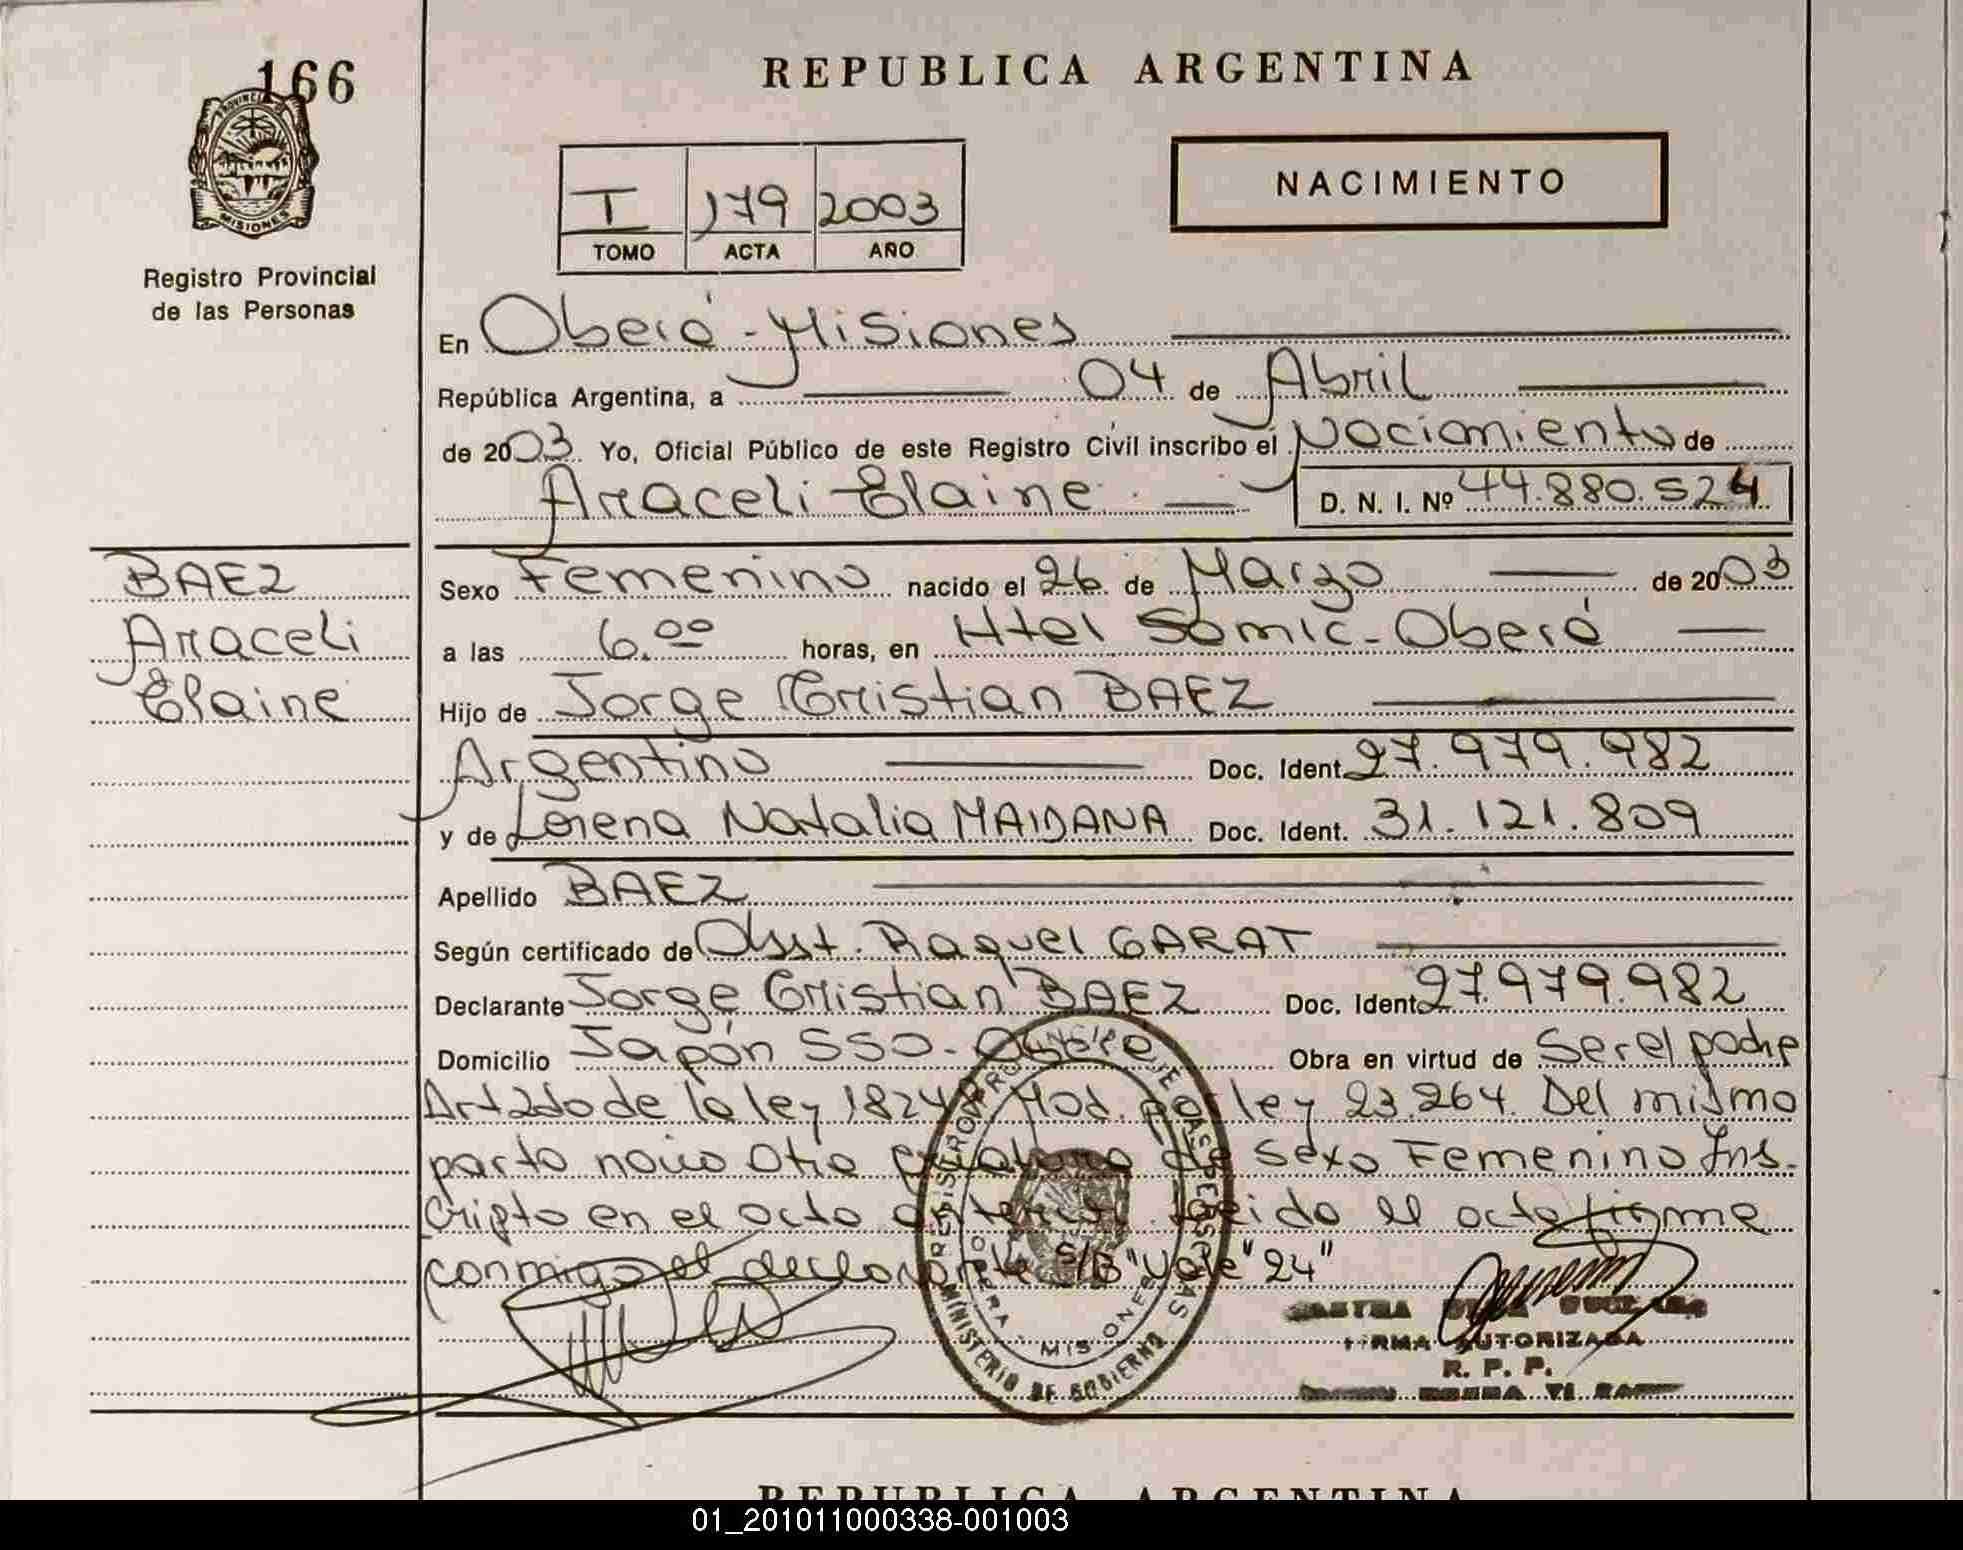 166
REPUBLICA ARGENTINA
PROVINCIA DE
MISIONES
Registro Provincial
de las Personas
I 179 2003
TOMO ACTA AÑO
NACIMIENTO
En Oberá - Misiones
República Argentina, a 04 de Abril
de 2003 Yo, Oficial Público de este Registro Civil inscribo el Nacimiento de
Araceli Elaine D. N. I. Nº 44.880.524
BAEZ
Araceli
Elaine
Sexo Femenino nacido el 26 de Marzo de 2003
a las 6.00 horas, en Htel Samic - Oberá
Hijo de Jorge Cristian BAEZ
Argentino Doc. Ident. 27.979.982
y de Lorena Natalia MAIDANA Doc. Ident. 31.121.809
Apellido BAEZ
Según certificado de Obst. Raquel GARAT
Declarante Jorge Cristian BAEZ Doc. Ident. 27.979.982
Domicilio Japón 550 - Oberá Obra en virtud de Ser el padre
Art 2do de la ley 18248 Mod. por ley 23.264. Del mismo
parto nació otra criatura de sexo Femenino Ins.
cripto en el acto anterior. Leido el acta firma
conmigo el declarante S/B "Vale" 24"
MINISTERIO DE GOBIERNO
MISIONES
FIRMA AUTORIZADA
R. P. P.
REPUBLICA ARGENTINA
01_201011000338-001003